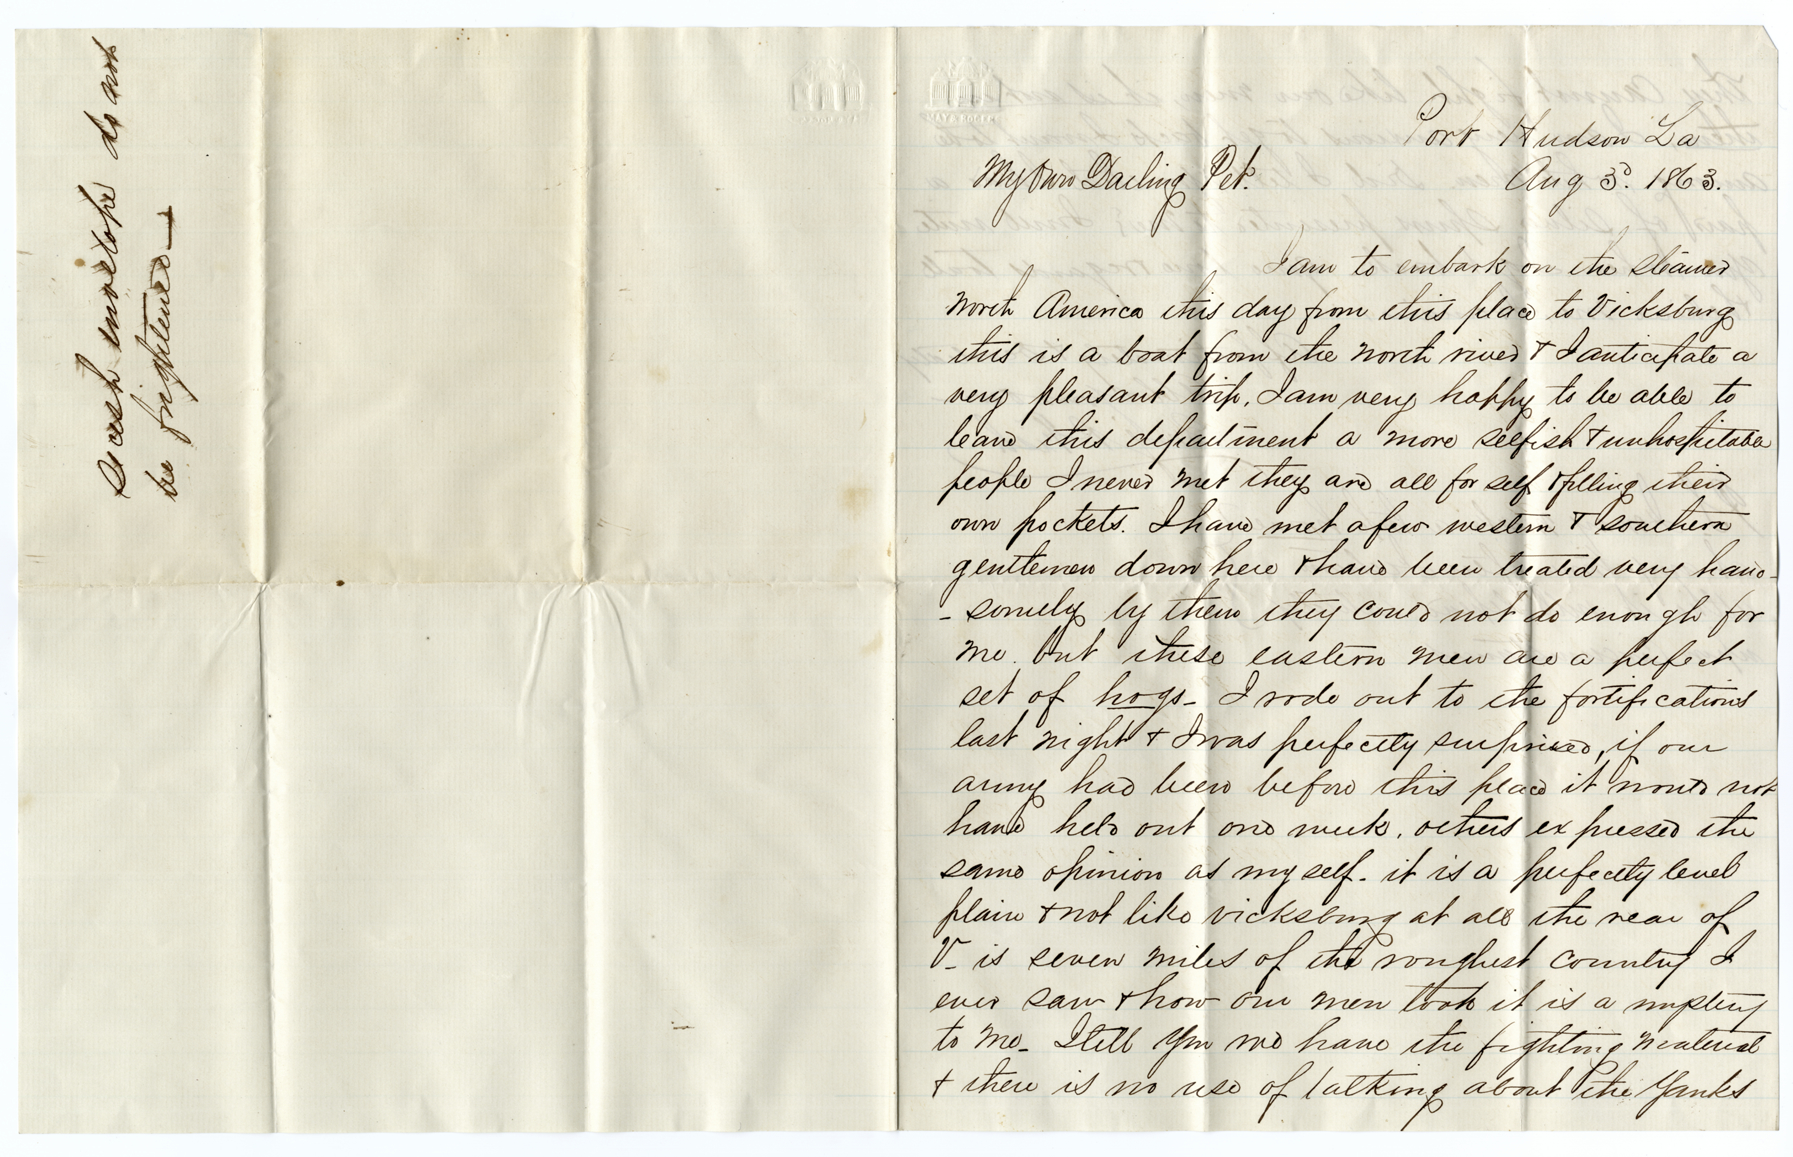 Secesh envelope do not
be frightened—
Port Hudson La
My Own Darling Pet.
Aug 3d. 1863.
I am to embark on the steamer
North America this day from this place to Vicksburg
this is a boat from the north river & I anticipate a
very pleasant trip. I am very happy to be able to
leave this department a more selfish & unhospitable
people I never met they are all for self & filling their
own pockets. I have met a few western & southern
gentlemen down here & have been treated very hand-
-somely by them they could not do enough for
me. but these eastern men are a perfect
set of hogs- I rode out to the fortifications
last night & I was perfectly surprised, if our
army had been before this place it would not
have held out one week. others expressed the
same opinion as myself- it is a perfectly level
plain & not like Vicksburg at all the rear of
V- is seven miles of the roughest country I
ever saw & how our men took it is a mystery
to me- I tell you we have the fighting material
& there is no use of talking about the Yanks